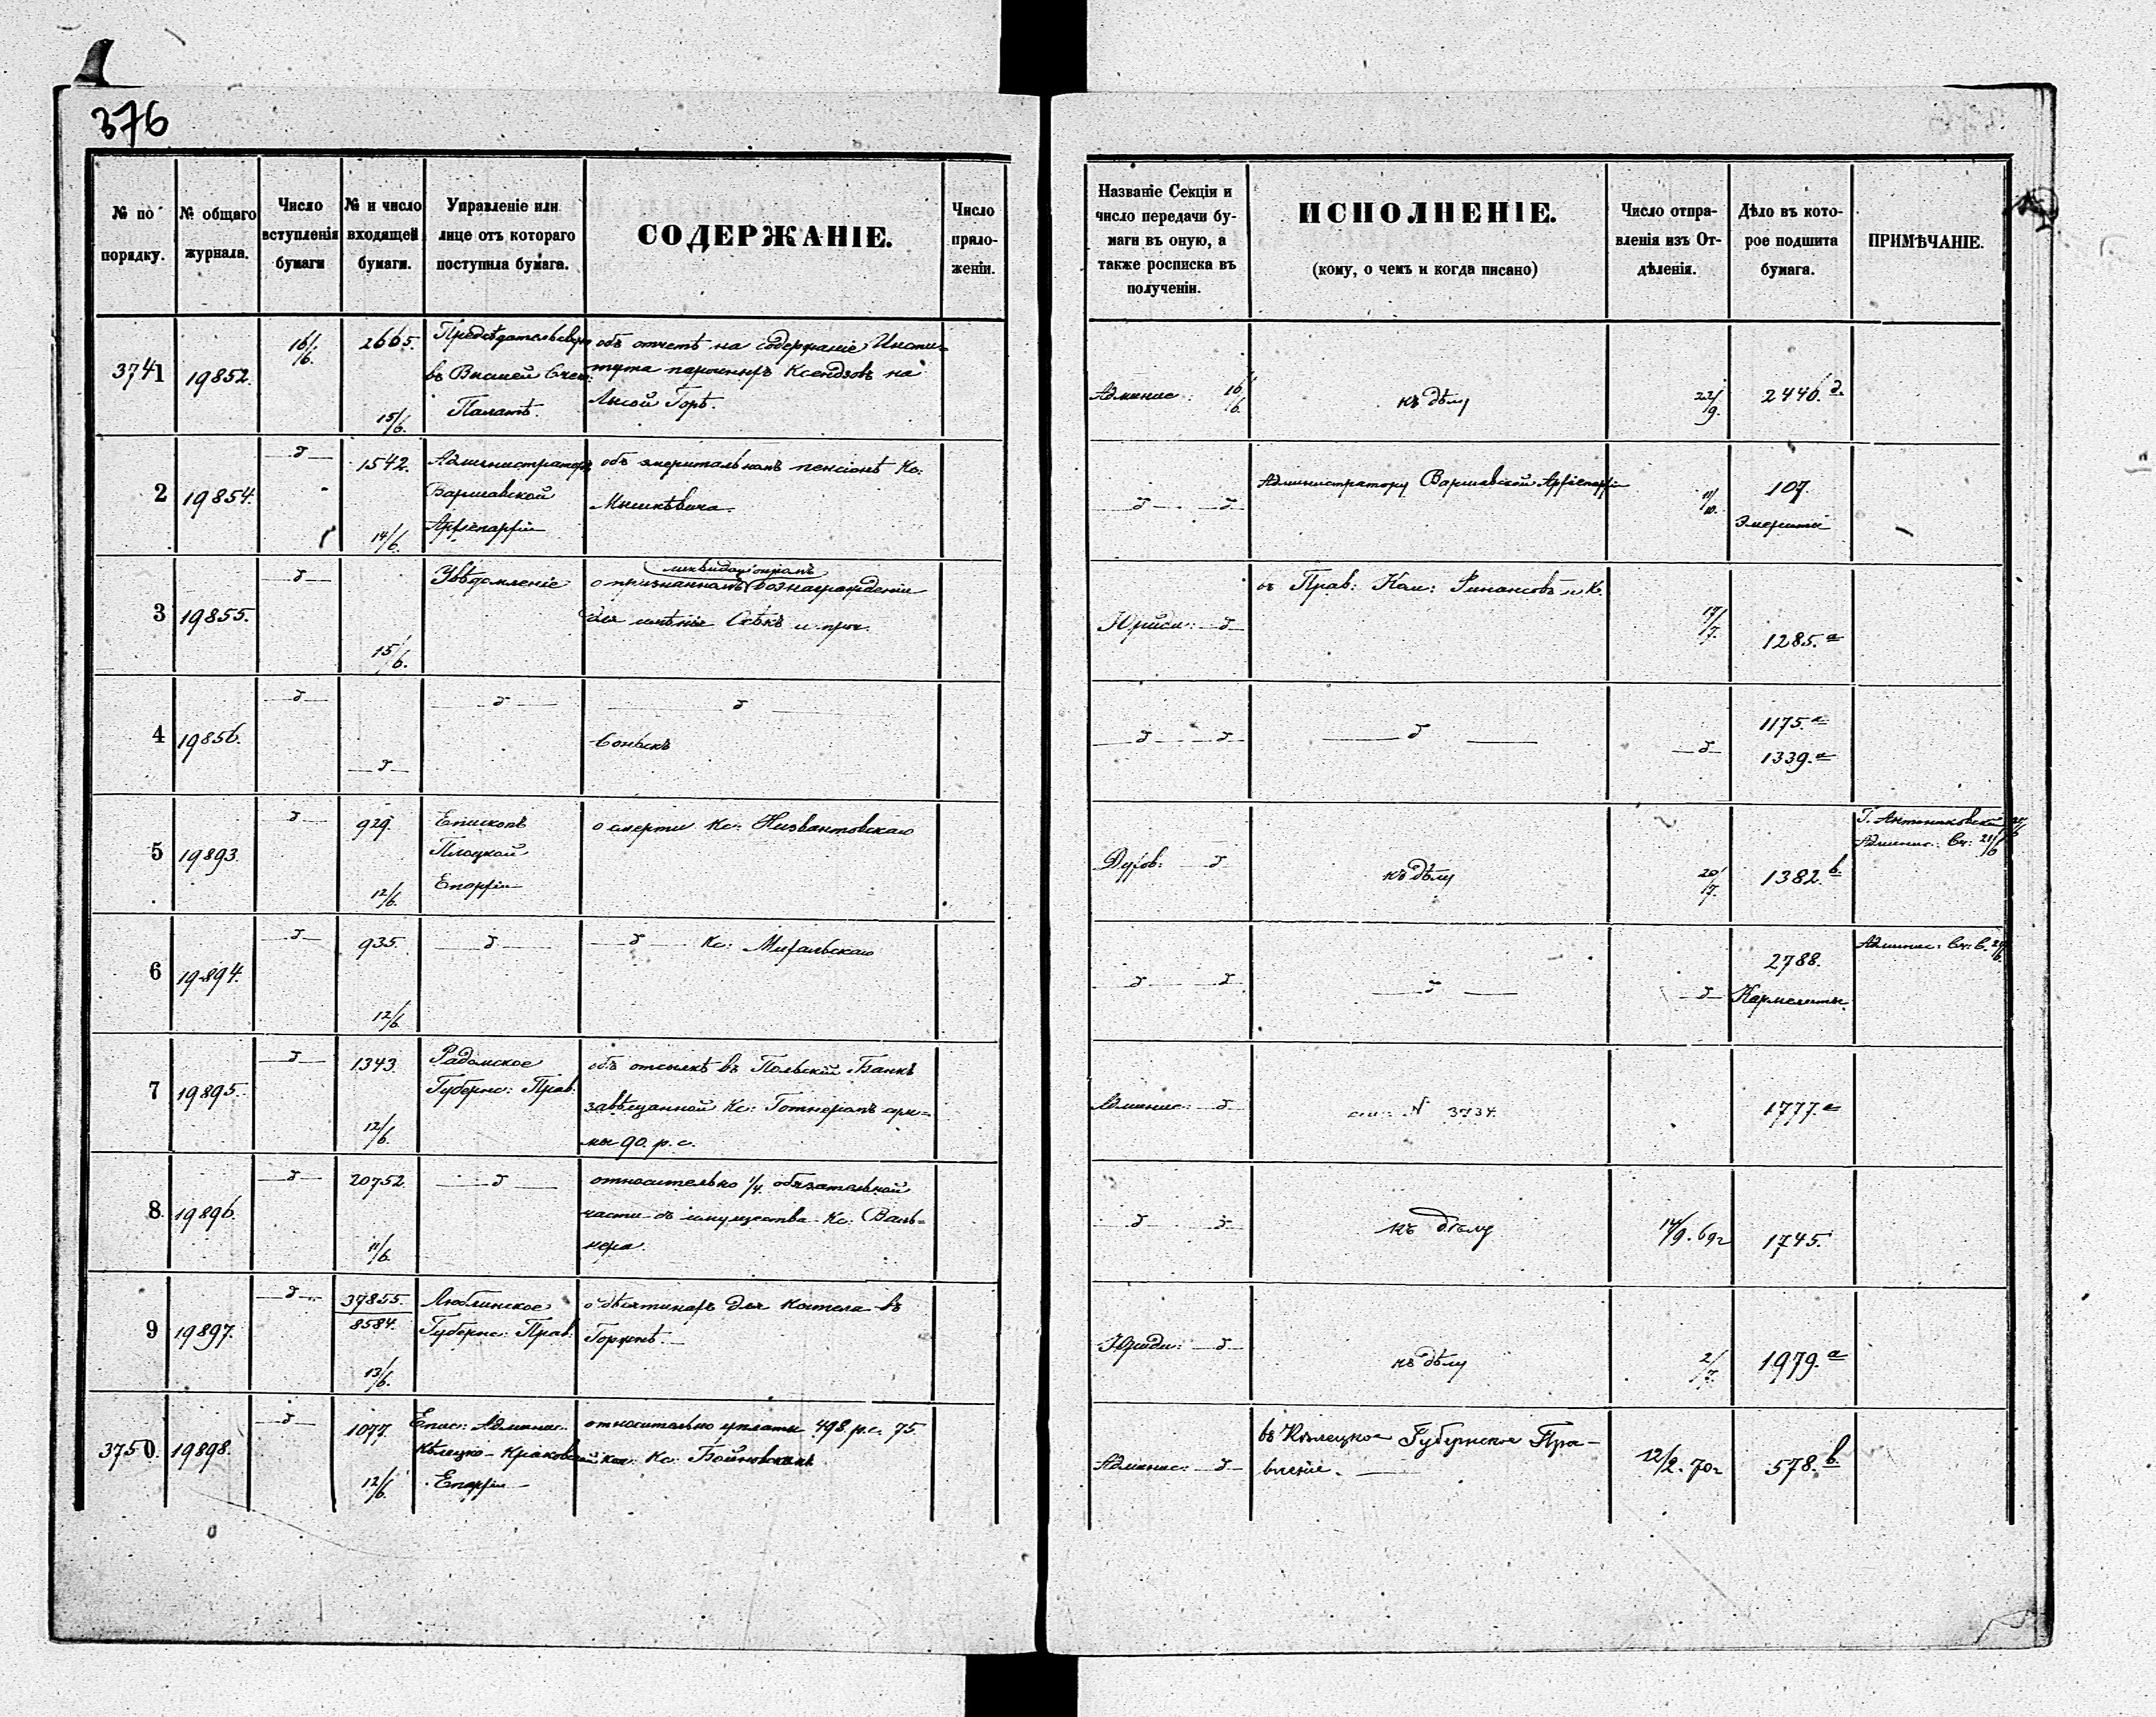 376
№ по порядку.
№ общаго журнала.
Число вступленія бумаги
№ и число входящей бумаги.
Управленіе или лице отъ котораго поступила бумага.
СОДЕРЖАНІЕ.
Число приложеніи.
Названіе Секціи и число передачи бумаги въ оную, а также росписка въ полученіи.
ИСПОЛНЕНІЕ.
(кому, о чемъ и когда писано)
Число отправленія изъ Отдѣленія.
Дѣло въ которое подшита бумага.
ПРИМѢЧАНІЕ.
3741 19852. 16/6. 2665. 15/6.
Предсѣдательствующ
въ Высшей Счет:
Палатѣ.
объ отчетѣ на содержаніе Инсти=
тута порочныхъ Ксендзовъ на
Лысой Горѣ.
Админис: 16/6. къ дѣлу 22/9. 2446. д.
2 19854. д 1542. 14/6.
Администраторъ
Варшавской
Архіепархіи
объ эмеритальномъ пенсіонѣ Кс:
д д Администратору Варшавской Архіепархіи 11/10. 107.
Эмериты
3 19855. д 15/6.
Увѣдомленіе
ликвидаціонномъ
о признанномъ вознагражденіи
для имѣнія и проч.
Юриди: д въ Прав: Ком: Финансовъ и К. 17/7. 1285. а
4 19856. д д д д
д д д д 1175. а
1339. а
5 19893. д 929. 12/6.
Епископъ
Плоцкой
Епархіи
о смерти Кс:
Духов: д къ дѣлу 20/7. 1382. b.
Админис: Сч: 21/6
6 19894. д 935. 12/6. д
д Кс: Михальскаго
д д д д 2788.
Кармелиты.
Админис: Сч: С.
7 19895. д 1343. 12/6.
Радомское
Губернс: Прав:
объ отсылкѣ въ Польскій Банкъ
завѣщанной Кс: сум=
мы 90. р. с.
Админис: д см: № 3737. 1777. а
8. 19896. д 20752. 11/6. д
относительно 1/4 обязательной
части съ имущества Кс: Валь=
нера.
д д къ дѣлу 14/9. 69г 1745.
9 19897. д 37855.
8584. 13/6.
Люблинское
Губернс: Прав:
о десятинахъ для костела въ
Юриди: д къ дѣлу 2/7. 1979. а
3750. 19898. д 1077. 12/6.
Епис: Админис:
Кѣлецко-Краковской
Епархіи
относительно уплаты 498. р.с. 75.
коп: Кс:
Админис: д въ Кѣлецкое Губернское Пра-
вленіе. 12/2. 70г 578. b.